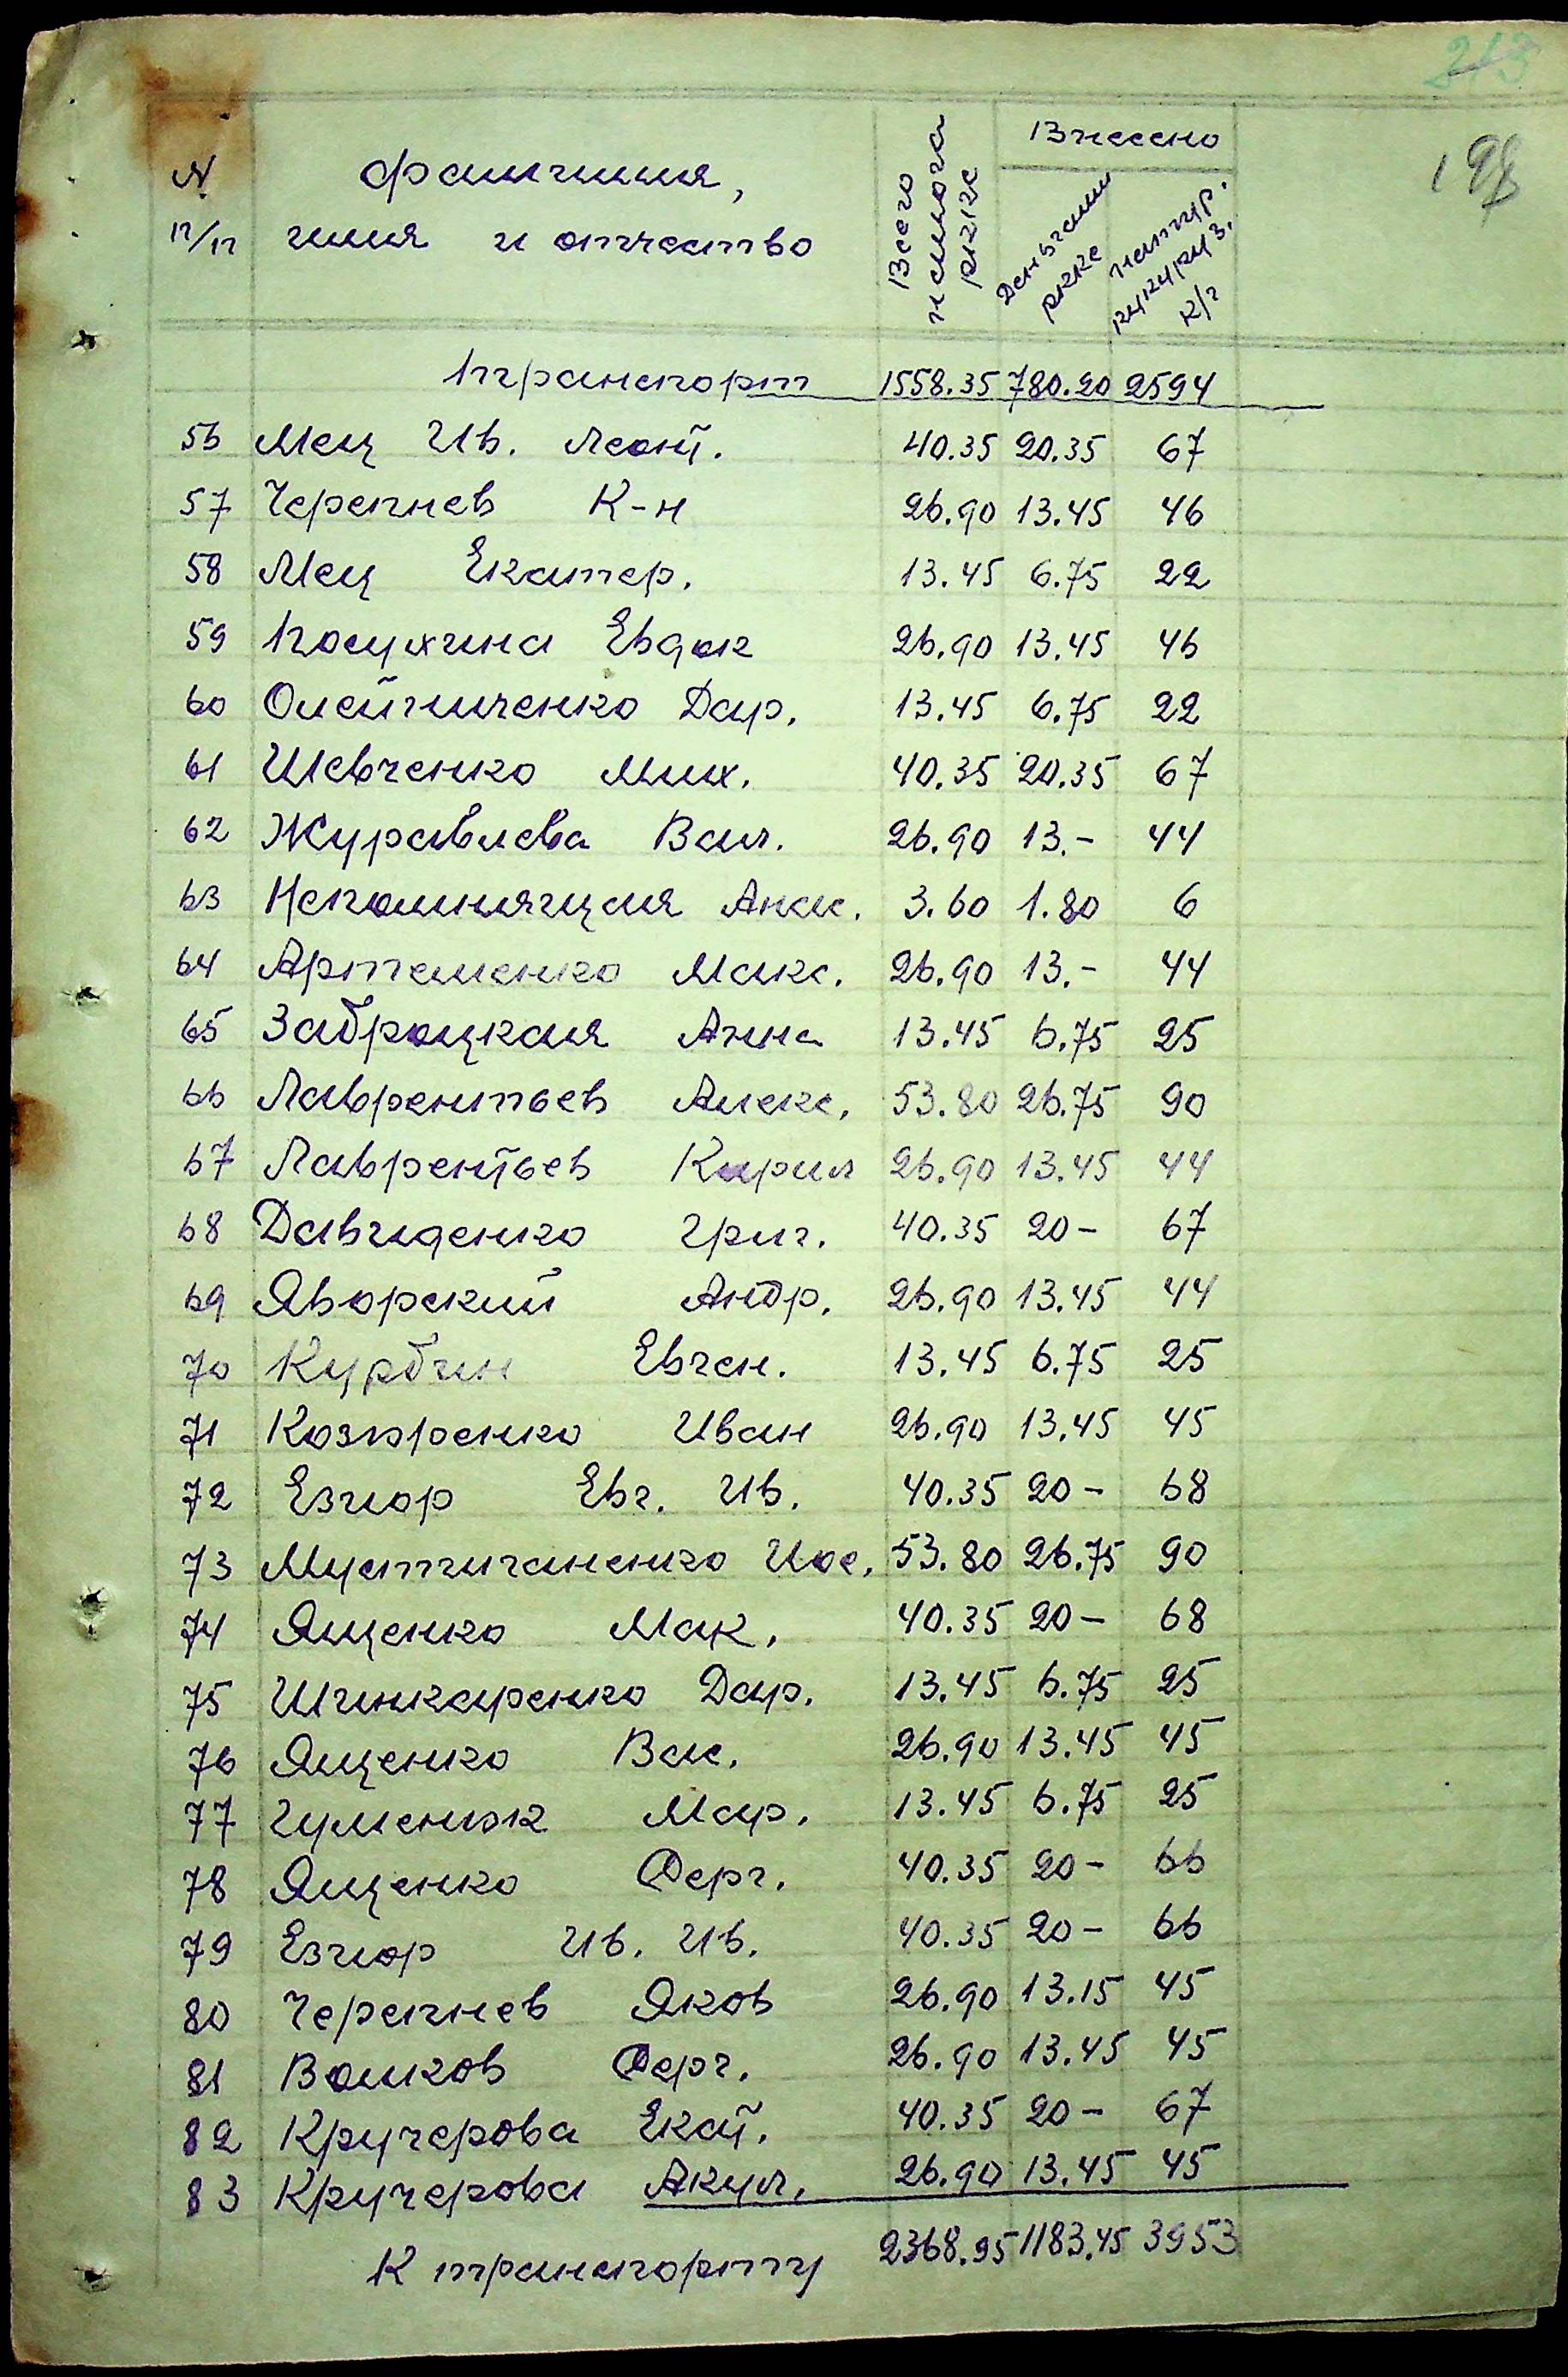 213
198
N
п/п
фамилия,
имя и отчество
Всего
налога
Внесено
Деньгами
натур.
кукуруз.
к/г
Транспорт 1558.35 780.20 2594
56 Мец Ив. Леонт. 40.35 20.35 67
57 Черепнев К-н 26.90 13.45 46
58 Мец Екатер. 13.45 6.75 22
59 Посухина Евдок 26.90 13.45 46
60 Олейниченко Дар. 13.45 6.75 22
61 Шевченко Мих. 40.35 20.35 67
62 Журавлева Вал. 26.90 13.- 44
63 Непомнящая Анас. 3.60 1.80 6
64 Артеменко Макс. 26.90 13.- 44
65 Заброцкая Анна 13.45 6.75 25
66 Лаврентьев Алекс. 53.80 26.75 90
67 Лаврентьев Кирил 26.90 13.45 44
68 Давиденко Григ. 40.35 20- 67
69 Яворский Андр. 26.90 13.45 44
70 Курбин Евген. 13.45 6.75 25
71 Козюренко Иван 26.90 13.45 45
72 Езиор Евг. Ив. 40.35 20- 68
73 Мустиганенко Иос. 53.80 26.75 90
74 Ященко Мак. 40.35 20- 68
75 Шинкаренко Дар. 13.45 6.75 25
76 Ященко Вас. 26.90 13.45 45
77 Гуменюк Мар. 13.45 6.75 25
78 Ященко Серг. 40.35 20- 66
79 Езиор Ив. Ив. 40.35 20- 66
80 Черепнев Яков 26.90 13.15 45
81 Волков Серг. 26.90 13.45 45
82 Кручерова Екат. 40.35 20- 67
83 Кручерова Акул. 26.90 13.45 45
К транспорту 2368.95 1183.45 3953